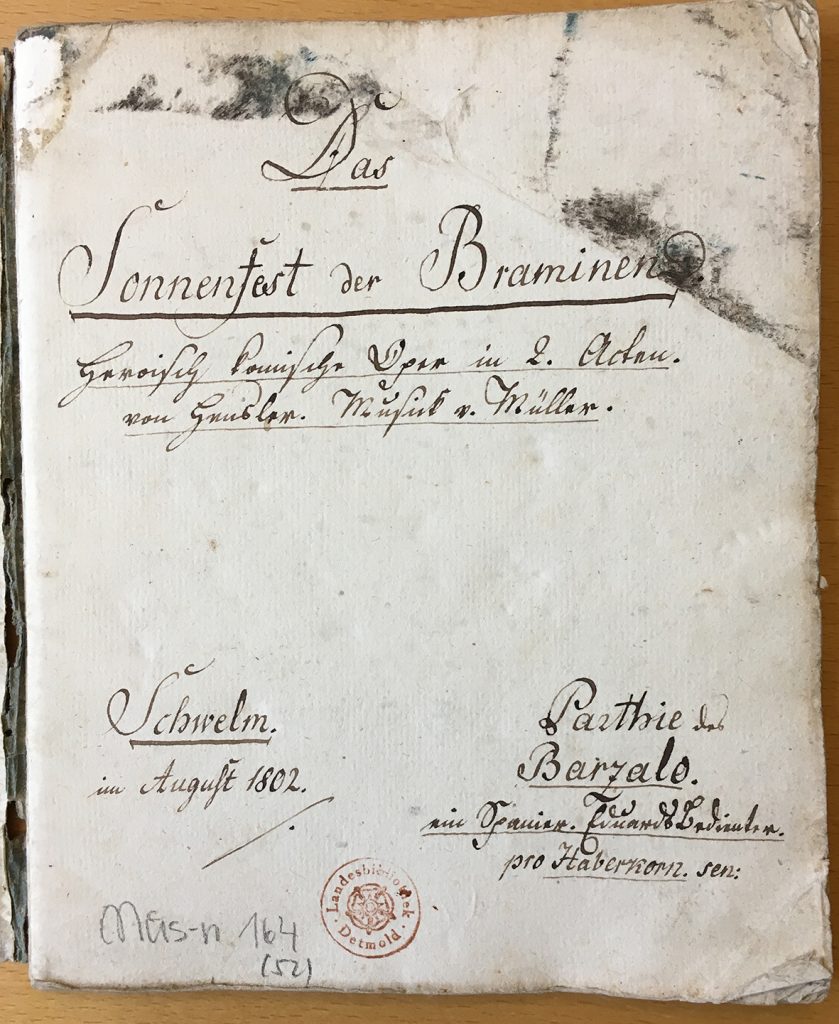 Das
Sonnenfest der Braminen.
Heroisch komische Oper in 2. Acten.
von Hensler. Musick v. Müller.
Schwelm.
im August 1802.
Parthie des
Barzalo.
ein Spanier. Eduards Bedienter.
pro Haberkorn. sen:
Landesbibliothek
Detmold
Mus-n 164
(52)